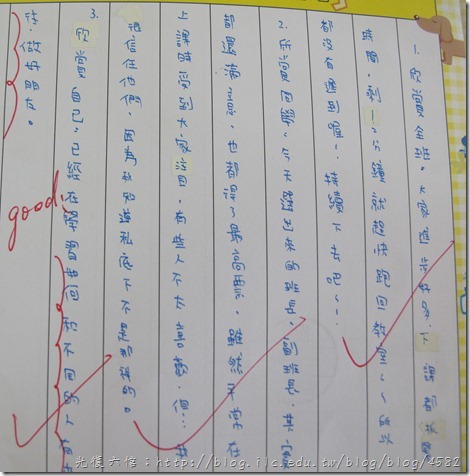 1. 欣賞全班。大家進步好多,下課都抓
時間,剩1~2分鐘就趕快跑回教室~~所以
都沒有遲到喔~!持續下去吧~~!
2. 欣賞同學。今天選出來的班長、副班長,其實
都還滿,也都得了最高票。雖然平常在
上課時受到大家注目,有些人不太喜歡,但
很信任他們,因為我知道私底下不是那樣的。
3. 欣賞自己。已經在學習如何和不同的人相
待,做好朋友。
good
光復六信:http://blog.ilc.edu.tw/blog/blog/4582